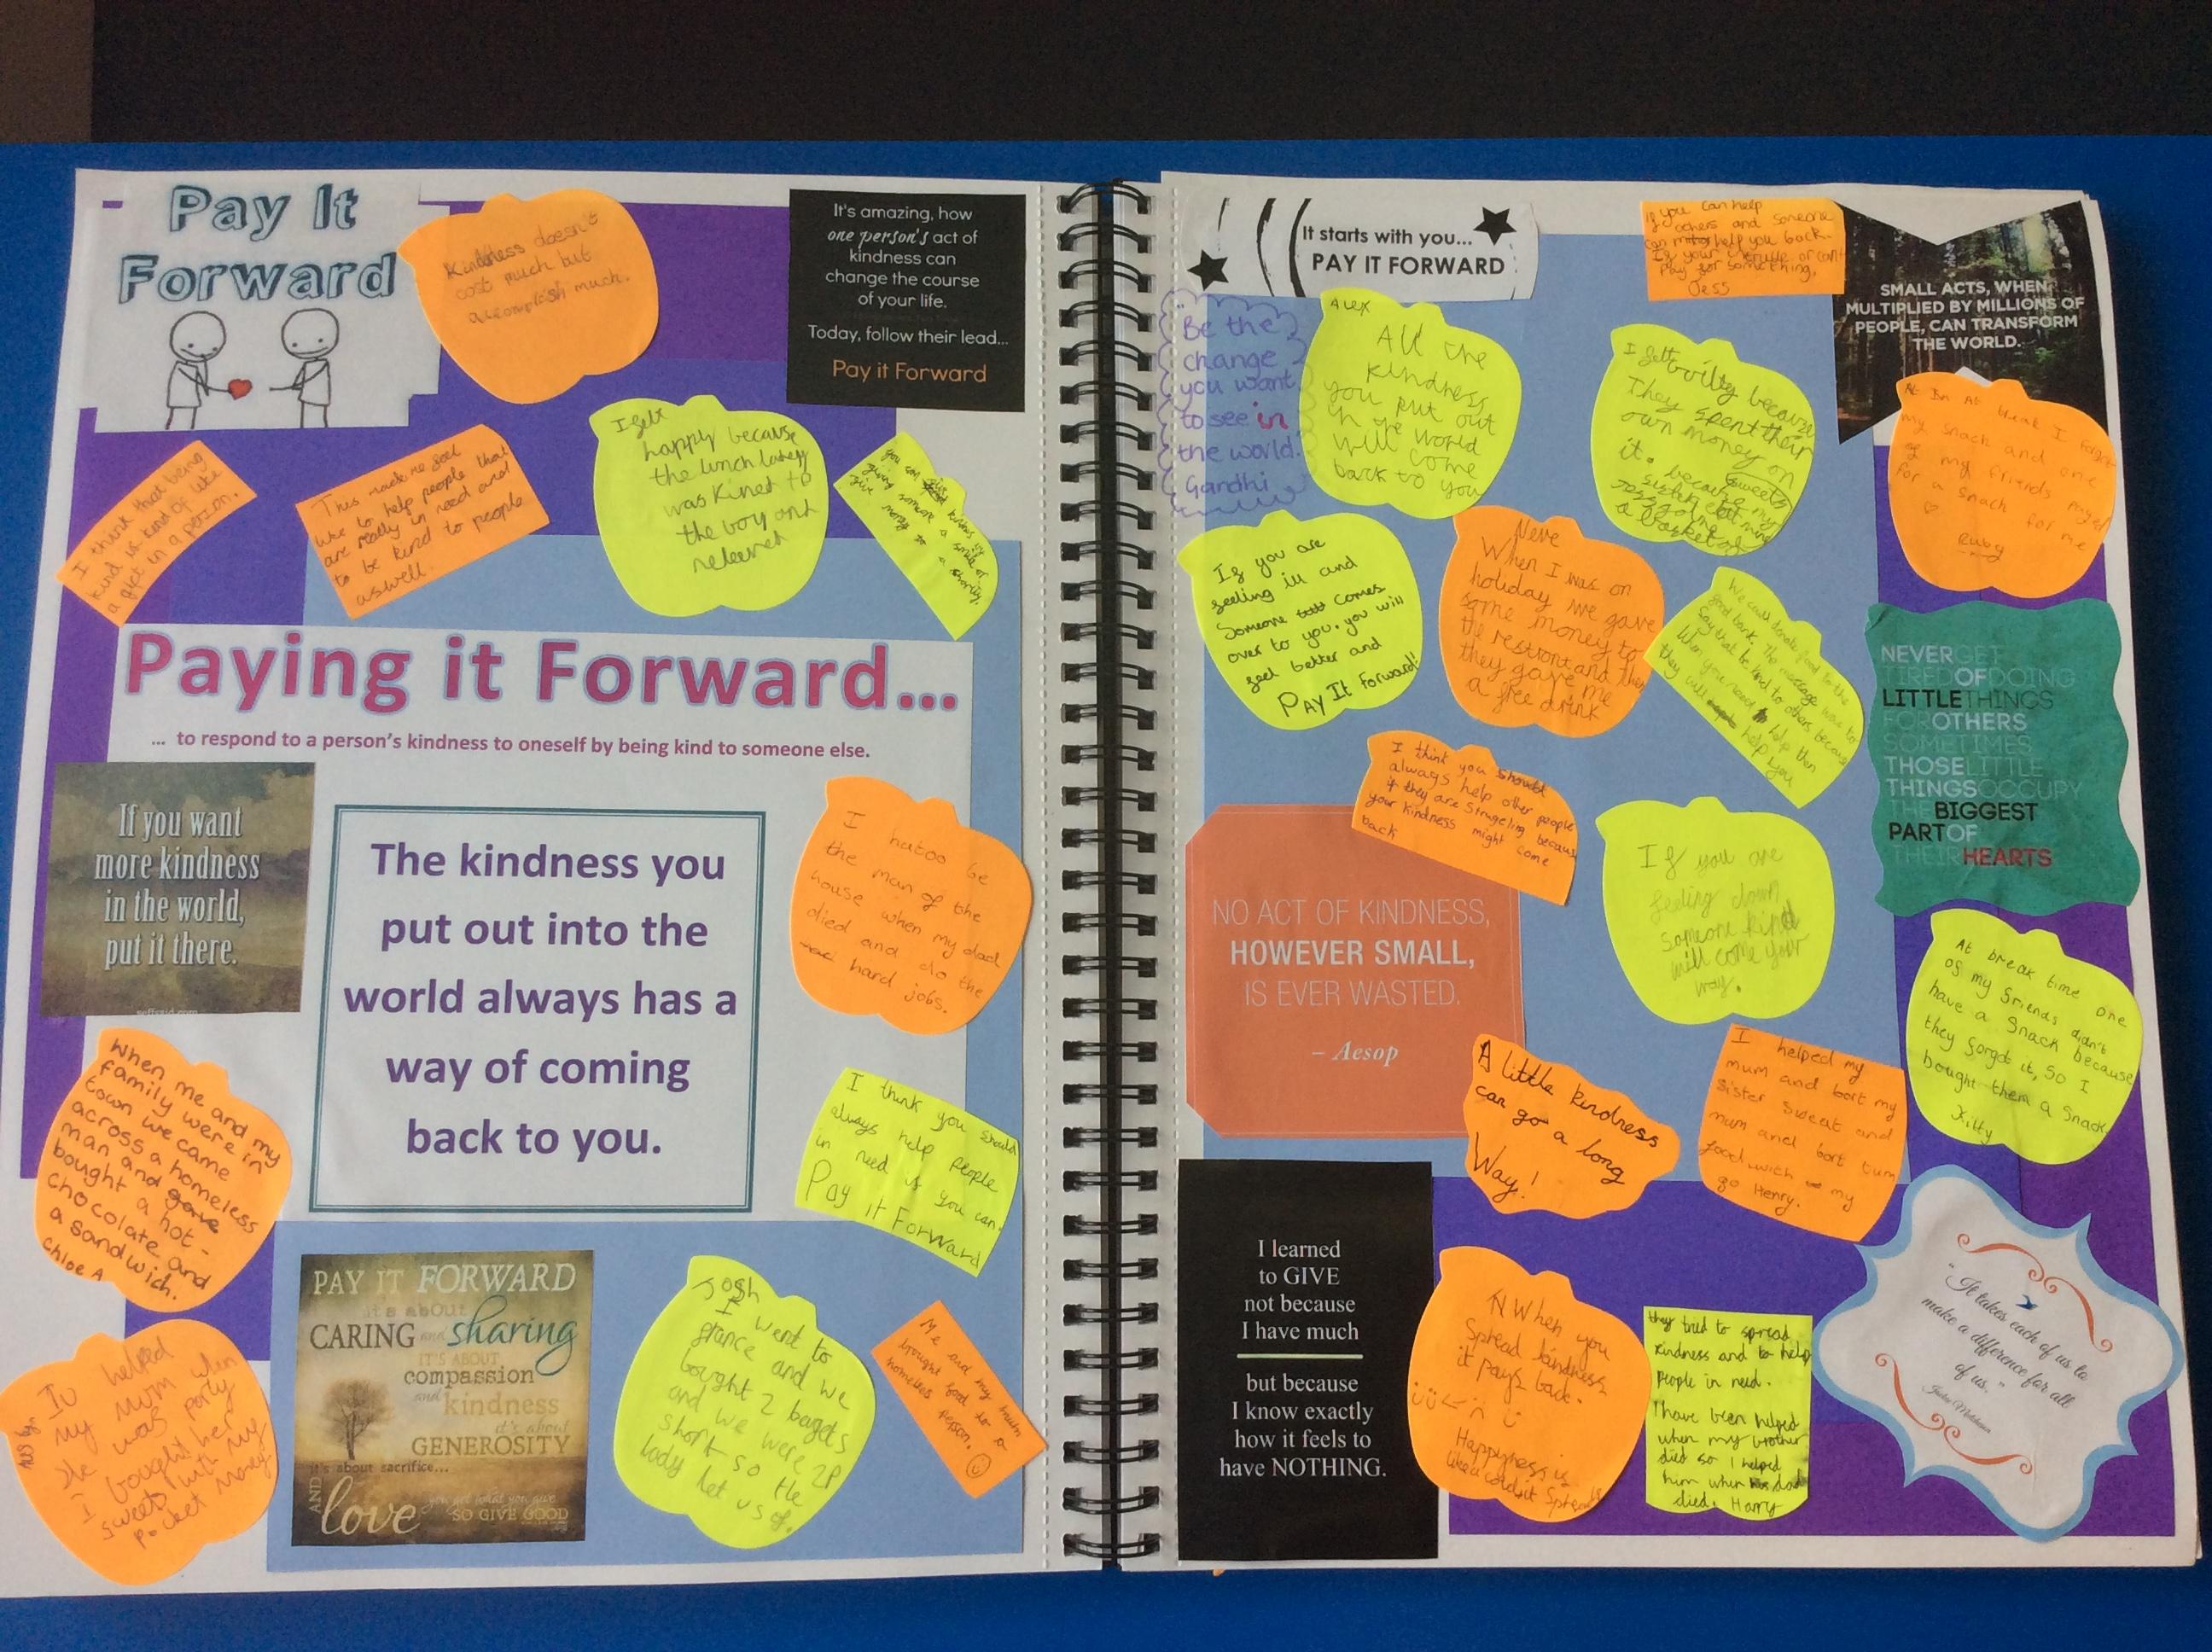 Pay It
Forward
Kindness doesn't
cost much but
accomplish much.
It's amazing, how
one person's act of
kindness can
change the course
of your life.
Today, follow their lead...
Pay it Forward
I think that being
kind is kind of like
a gift in a person.
This made me feel
like to help people that
are really in need and
to be kind to people
aswell.
I felt
happy because
the lunch
was to
the boy and
you can
giving someone a smile or
give money to a
Paying it Forward...
... to respond to a person's kindness to oneself by being kind to someone else.
If you want
more kindness
in the world,
put it there.
The kindness you
put out into the
world always has a
way of coming
back to you.
I hatoo be
the man of the
house when my dad
died and do the
hard jobs.
When me and my
family were in
town we came
across a homeless
man and gave
bought a hot-
chocolate and
a sandwich.
Chloe A
I think you should
always help people
in need if you can.
Pay it Forward
PAY IT FORWARD
it's about
CARING and sharing
IT'S ABOUT
compassion
and kindness
it's about
GENEROSITY
it's about sacrifice...
AND
love you get what you give
SO GIVE GOOD
helped
my mum when
She was
I bought her
sweets with my
pocket money
Josh
I went to
france and we
bought 2 bagets
and we were 2p
short so the
lady let us of.
Me and my mum
bought food to a
homeless person.
It starts with you...
PAY IT FORWARD
If you can help
others and someone
can help you back.
If your or can't
pay for something,
Jess
SMALL ACTS, WHEN
MULTIPLIED BY MILLIONS OF
PEOPLE, CAN TRANSFORM
THE WORLD.
"Be the
change
you want
to see in
the world."
Gandhi
Alex
All the
kindness
you put out
in the world
will come
back to you
I felt
They spent their
own money on
it. because my
sister
a basket of
sweets
my snack and one
of my friends payed
for a snack for me
Ruby
If you are
feeling ill and
someone comes
over to you, you will
feel better and
Pay It Forward!
Neve
When I was on
holiday we gave
some money to
the restront and then
they gave me
a free drink
We could donate food to the
food bank. The message was to
Say that be kind to others because
When you need help then
they will help you
NEVER GET
TIRED OF DOING
LITTLE THINGS
FOR OTHERS
SOMETIMES
THOSE LITTLE
THINGS OCCUPY
THE BIGGEST
PART OF
THEIR HEARTS
I think you should
always help other people
if they are strugeling because
your kindness might come
back
NO ACT OF KINDNESS,
HOWEVER SMALL,
IS EVER WASTED.
– Aesop
If you are
feeling down
someone kind
will come your
way.
At break time one
of my friends didn't
have a snack because
they forgot it, so I
bought them a snack
Kitty
A little kindness
can go a long
Way!
I helped my
mum and bort my
sister sweat and
mum and bort tum
food with my
go Henry.
I learned
to GIVE
not because
I have much
but because
I know exactly
how it feels to
have NOTHING.
When you
Spread kindness
it pays back.
Happyness is
like a cold it Spreads
they tried to spread
kindness and to help
people in need.
I have been helped
when my brother
died so I helped
him when dad
died. Harry
"It takes each of us to
make a difference for all
of us."